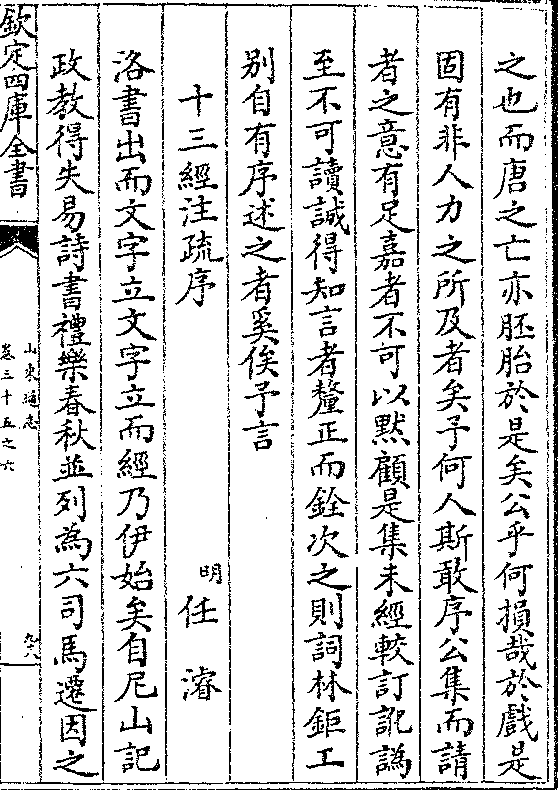 之也而唐之亡亦胚胎於是矣公乎何損哉於戲是
固有非人力之所及者矣予何人斯敢序公集而請
者之意有足嘉者不可以默顧是集未經較訂訛譌
至不可讀誠得知言者釐正而銓次之則詞林鉅工
别自有序述之者奚俟予言
十三經注疏序
明 任濬
洛書出而文字立文字立而經乃伊始矣自尼山記
政教得失易詩書禮樂春秋並列為六司馬遷因之
欽定四庫全書
山東通志
卷三十五之六
九十八